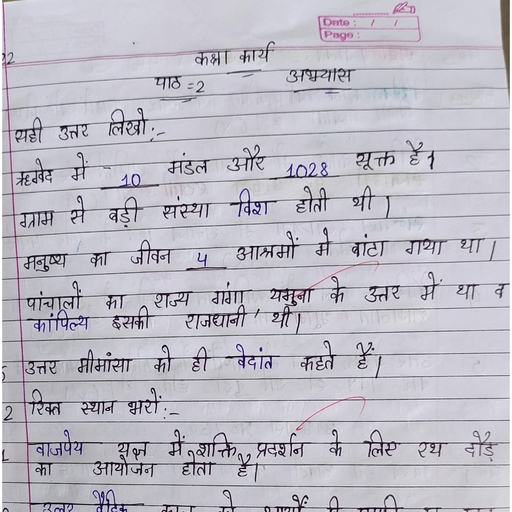 Date : / /
Page :
22
कक्षा कार्य
पाठ =2 अभ्यास
सही उत्तर लिखो:-
ऋग्वेद में 10 मंडल और 1028 सूक्त है।
ग्राम से बड़ी संस्था विश होती थी।
मनुष्य का जीवन 4 आश्रमों में बांटा गया था।
पांचालों का राज्य गंगा यमुना के उत्तर में था व
कांपिल्य इसकी राजधानी थी।
5 उत्तर मीमांसा को ही वेदांत कहते हैं।
2 रिक्त स्थान भरों:-
1 वाजपेय यज्ञ में शक्ति प्रदर्शन के लिए रथ दौड़
का आयोजन होता है।
उत्तर वैदिक